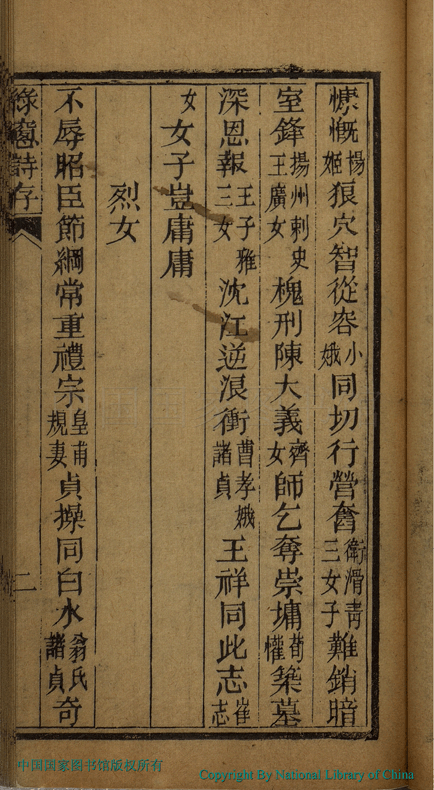 慷慨楊姬狼穴智從容小娥同切行營舊衛滑青三女子難銷暗
室鋒揚州刺史王廣女槐刑陳大義齊女師乞奪崇墉荀灌築墓
深恩報王子雅三女沈江逆浪衝曹孝娥諸貞王祥同此志崔志
女女子豈庸庸
烈女
不辱昭臣節綱常重禮宗皇甫規妻貞操同白水翁氏諸貞奇
詩存
二
中国国家图书馆版权所有
Copyright By National Library of China